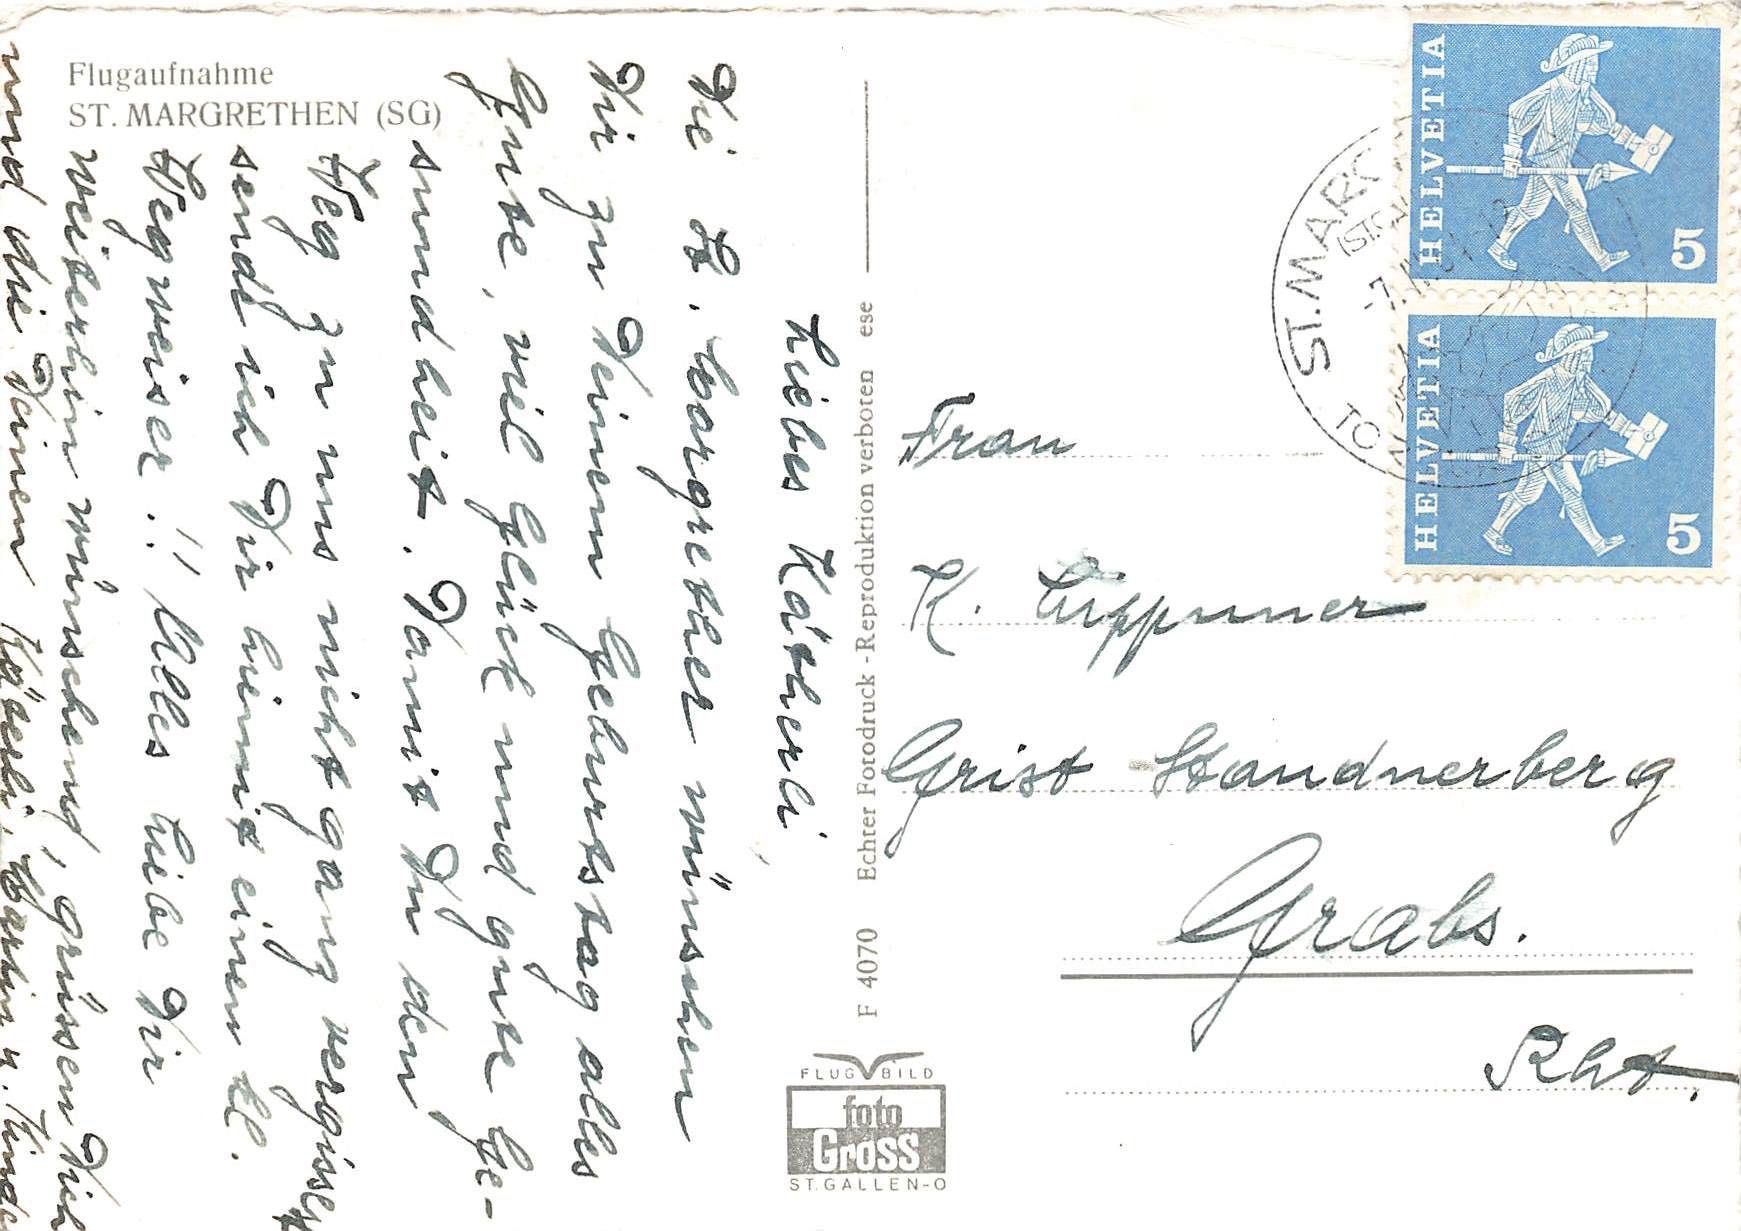 Flugaufnahme
ST. MARGRETHEN (SG)
Liebes Kätherli
Die St. Margrether wünschen
Dir zu Deinem Geburtstag alles
Gute, viel Glück und gute Ge-
sundheit. Damit Du den
Weg zu uns nicht ganz vergisst
sende ich Dir hiemit einen kl.
Wegweiser!! Alles Liebe Dir
weiterhin wünschend, grüssen Dich
und die Deinen
F 4070 Echter Fotodruck - Reproduktion verboten ese
FLUG BILD
foto
Gross
ST. GALLEN-O
HELVETIA 5
HELVETIA 5
ST. MARG
-7.
Frau
K. Lippuner
Grist - Staudnerberg
Grabs.
Rht.